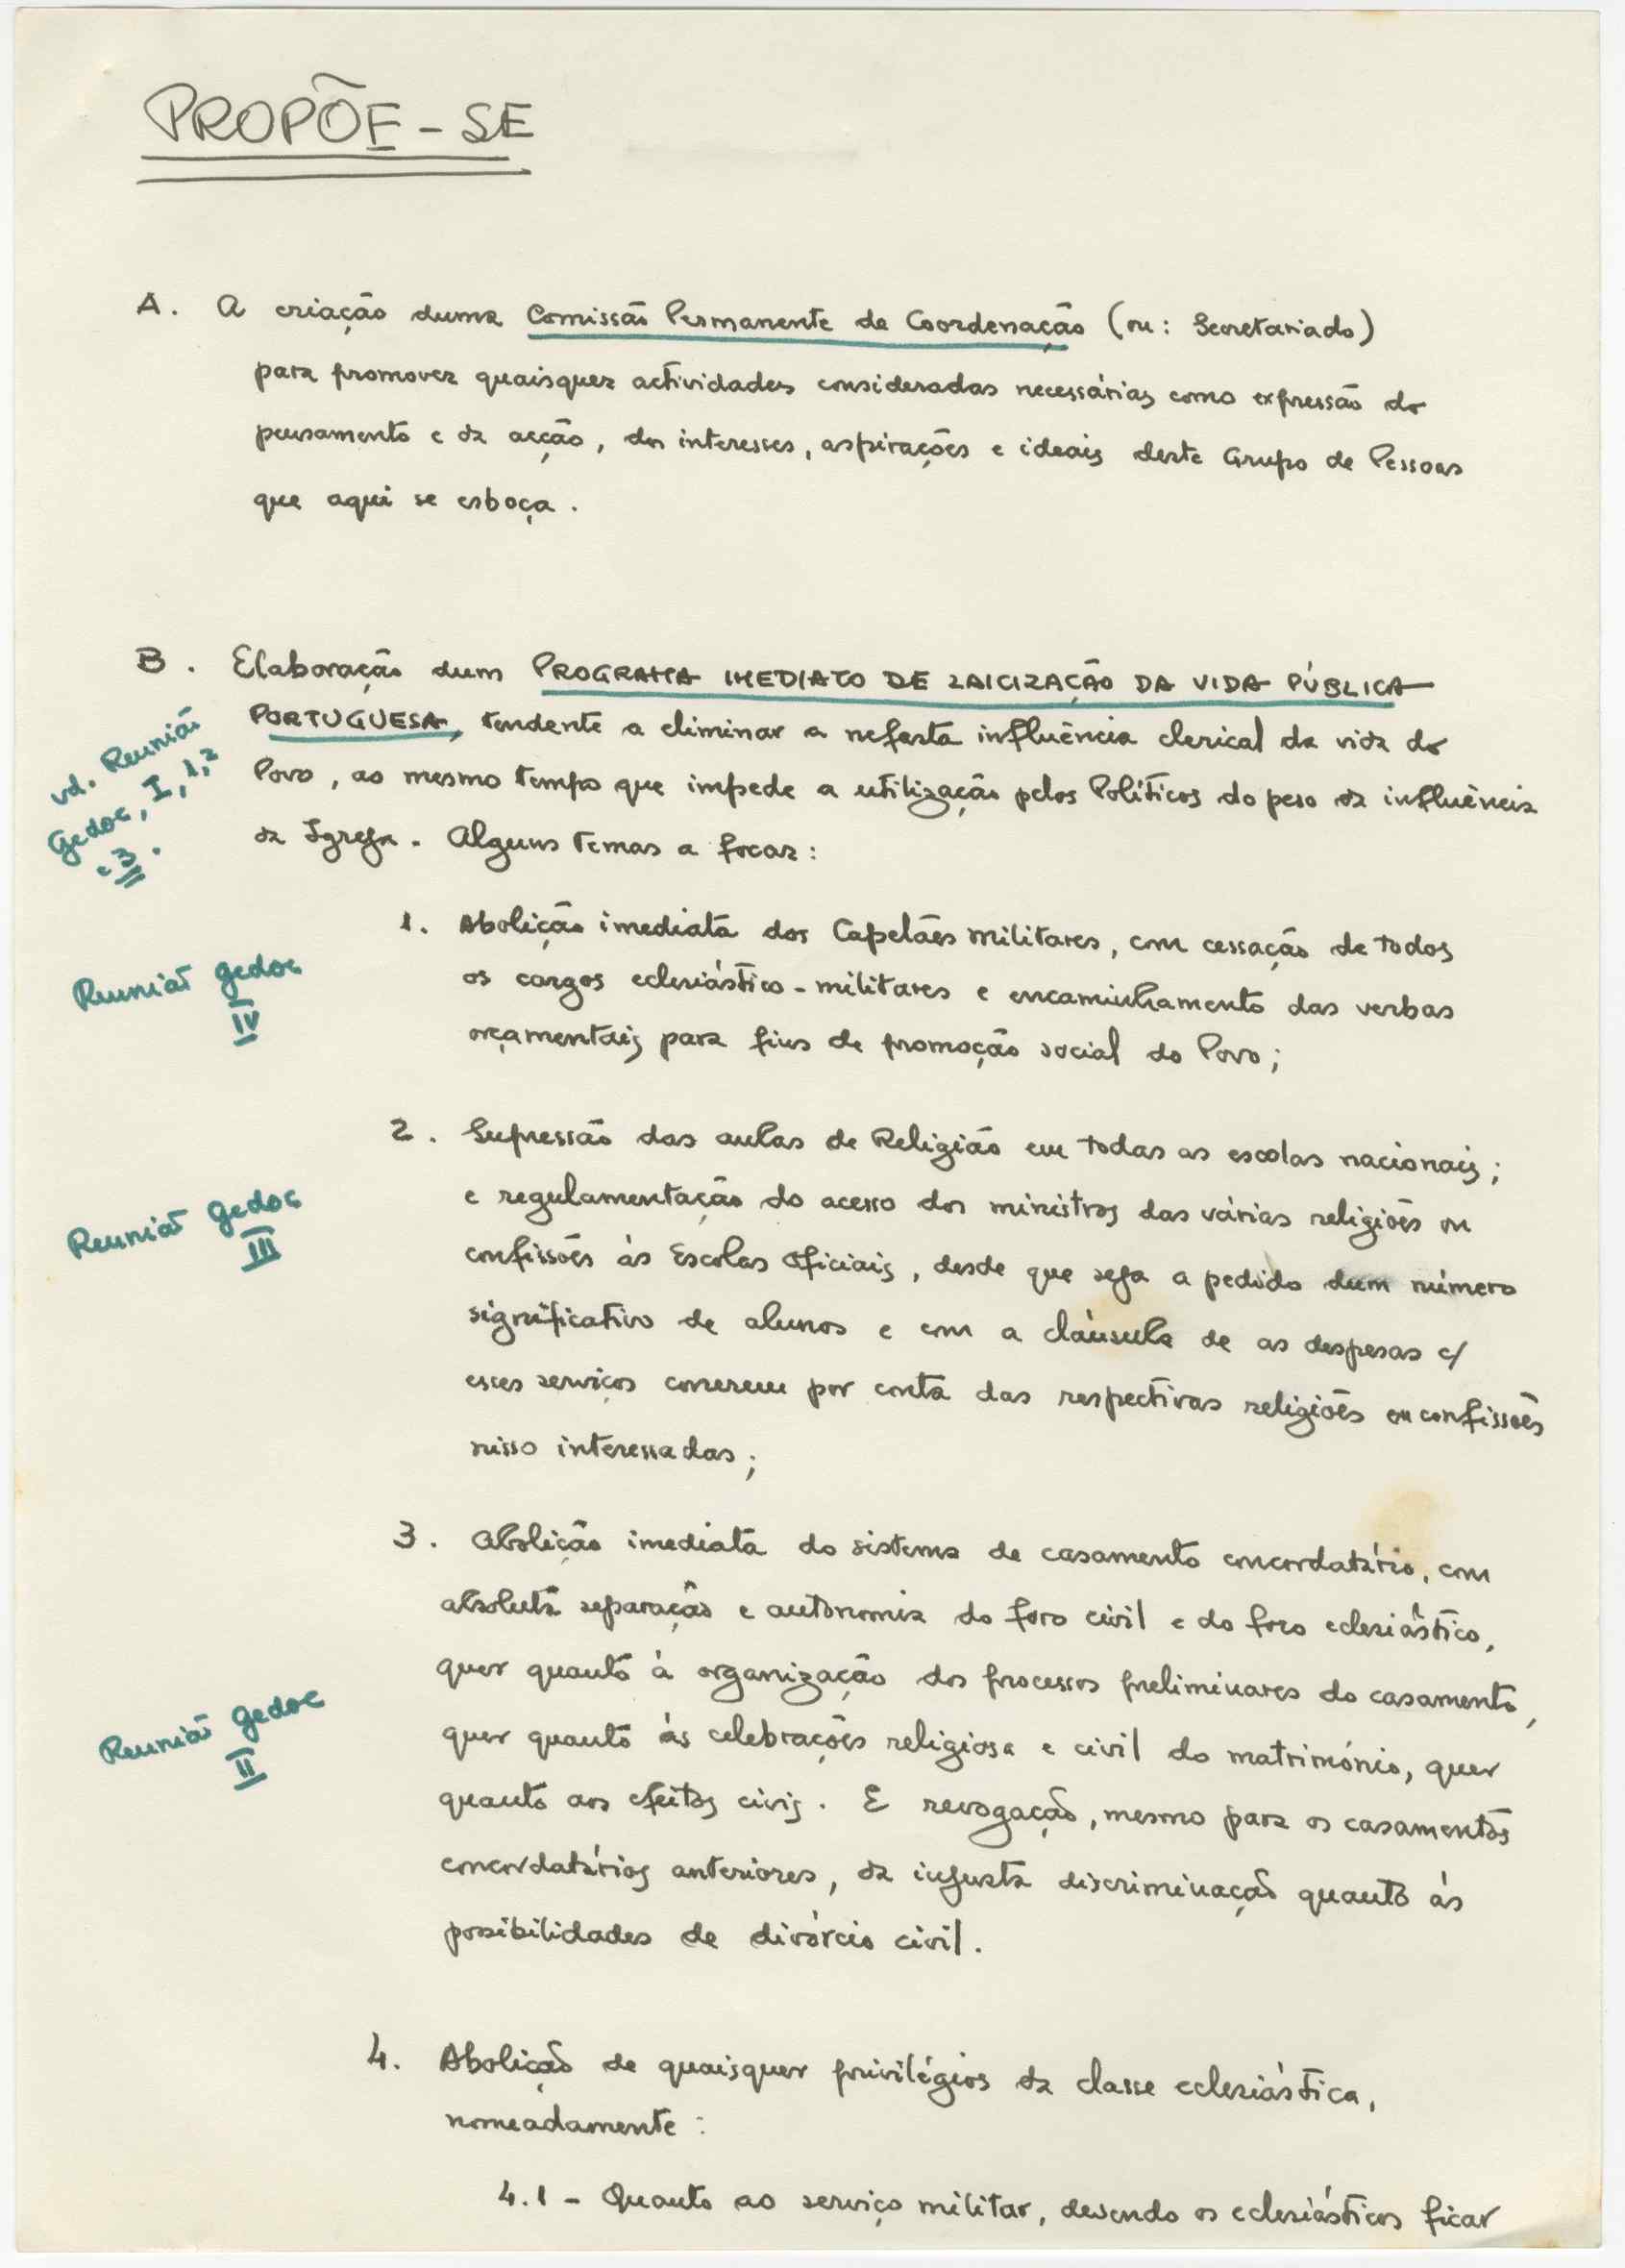 PROPÕE-SE
A. A criação duma Comissão Permanente de Coordenação (ou: Secretariado)
para promover quaisquer actividades consideradas necessárias como expressão do
pensamento e da acção, dos interesses, aspirações e ideais deste Grupo de Pessoas
que aqui se esboça.
B. Elaboração dum PROGRAMA IMEDIATO DE LAICIZAÇÃO DA VIDA PÚBLICA
PORTUGUESA, tendente a eliminar a nefasta influência clerical da vida do
Povo, ao mesmo tempo que impede a utilização pelos Políticos do peso da influência
da Igreja. Alguns temas a focar:
vd. Reunião
Gedoc, I, 1, 2
e 3.
1. Abolição imediata dos Capelães militares, com cessação de todos
os cargos eclesiástico-militares e encaminhamento das verbas
orçamentais para fins de promoção social do Povo;
Reunião Gedoc
IV
2. Supressão das aulas de Religião em todas as escolas nacionais;
e regulamentação do acesso dos ministros das várias religiões ou
confissões às Escolas Oficiais, desde que seja a pedido dum número
significativo de alunos e com a cláusula de as despesas c/
esses serviços correrem por conta das respectivas religiões ou confissões
nisso interessadas;
Reunião Gedoc
III
3. Abolição imediata do sistema de casamento concordatário, com
absoluta separação e autonomia do foro civil e do foro eclesiástico,
quer quanto à organização dos processos preliminares do casamento,
quer quanto às celebrações religiosa e civil do matrimónio, quer
quanto aos efeitos civis. E revogação, mesmo para os casamentos
concordatários anteriores, da injusta discriminação quanto às
possibilidades de divórcio civil.
Reunião Gedoc
II
4. Abolição de quaisquer privilégios da classe eclesiástica,
nomeadamente:
4.1 - Quanto ao serviço militar, devendo os eclesiásticos ficar